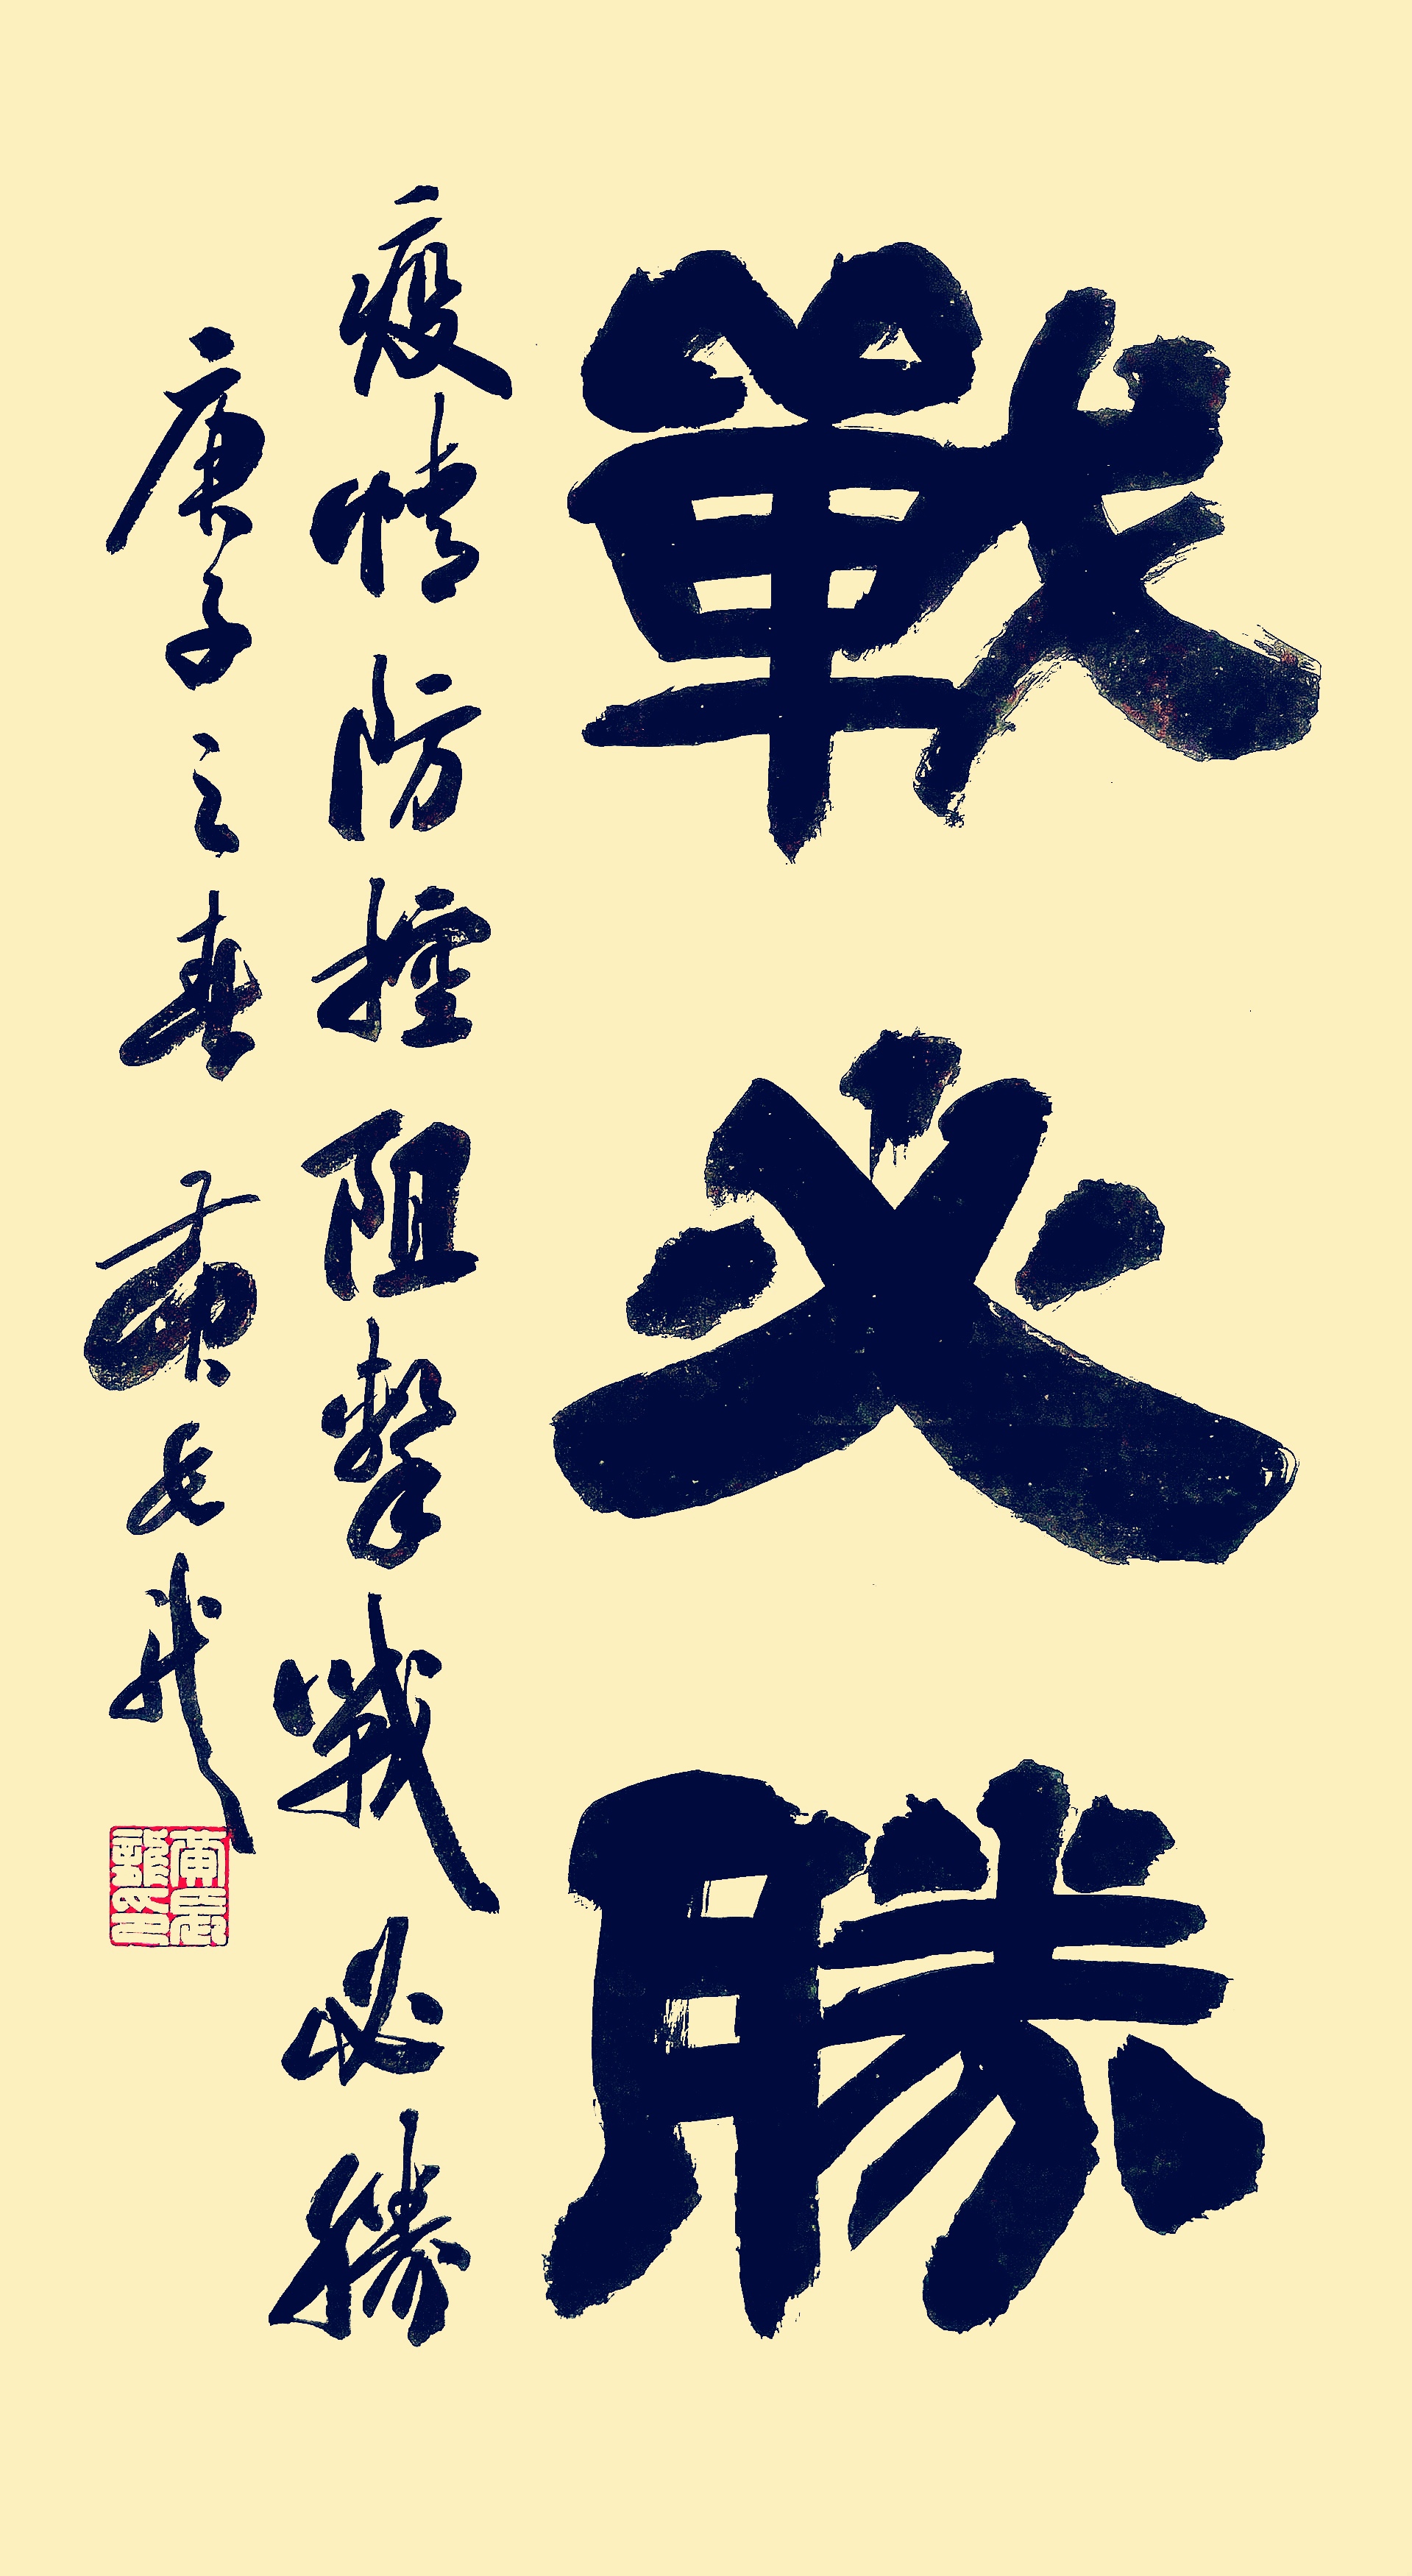 戰必勝
疫情防控阻擊戰必勝
庚子之春 黄長飛